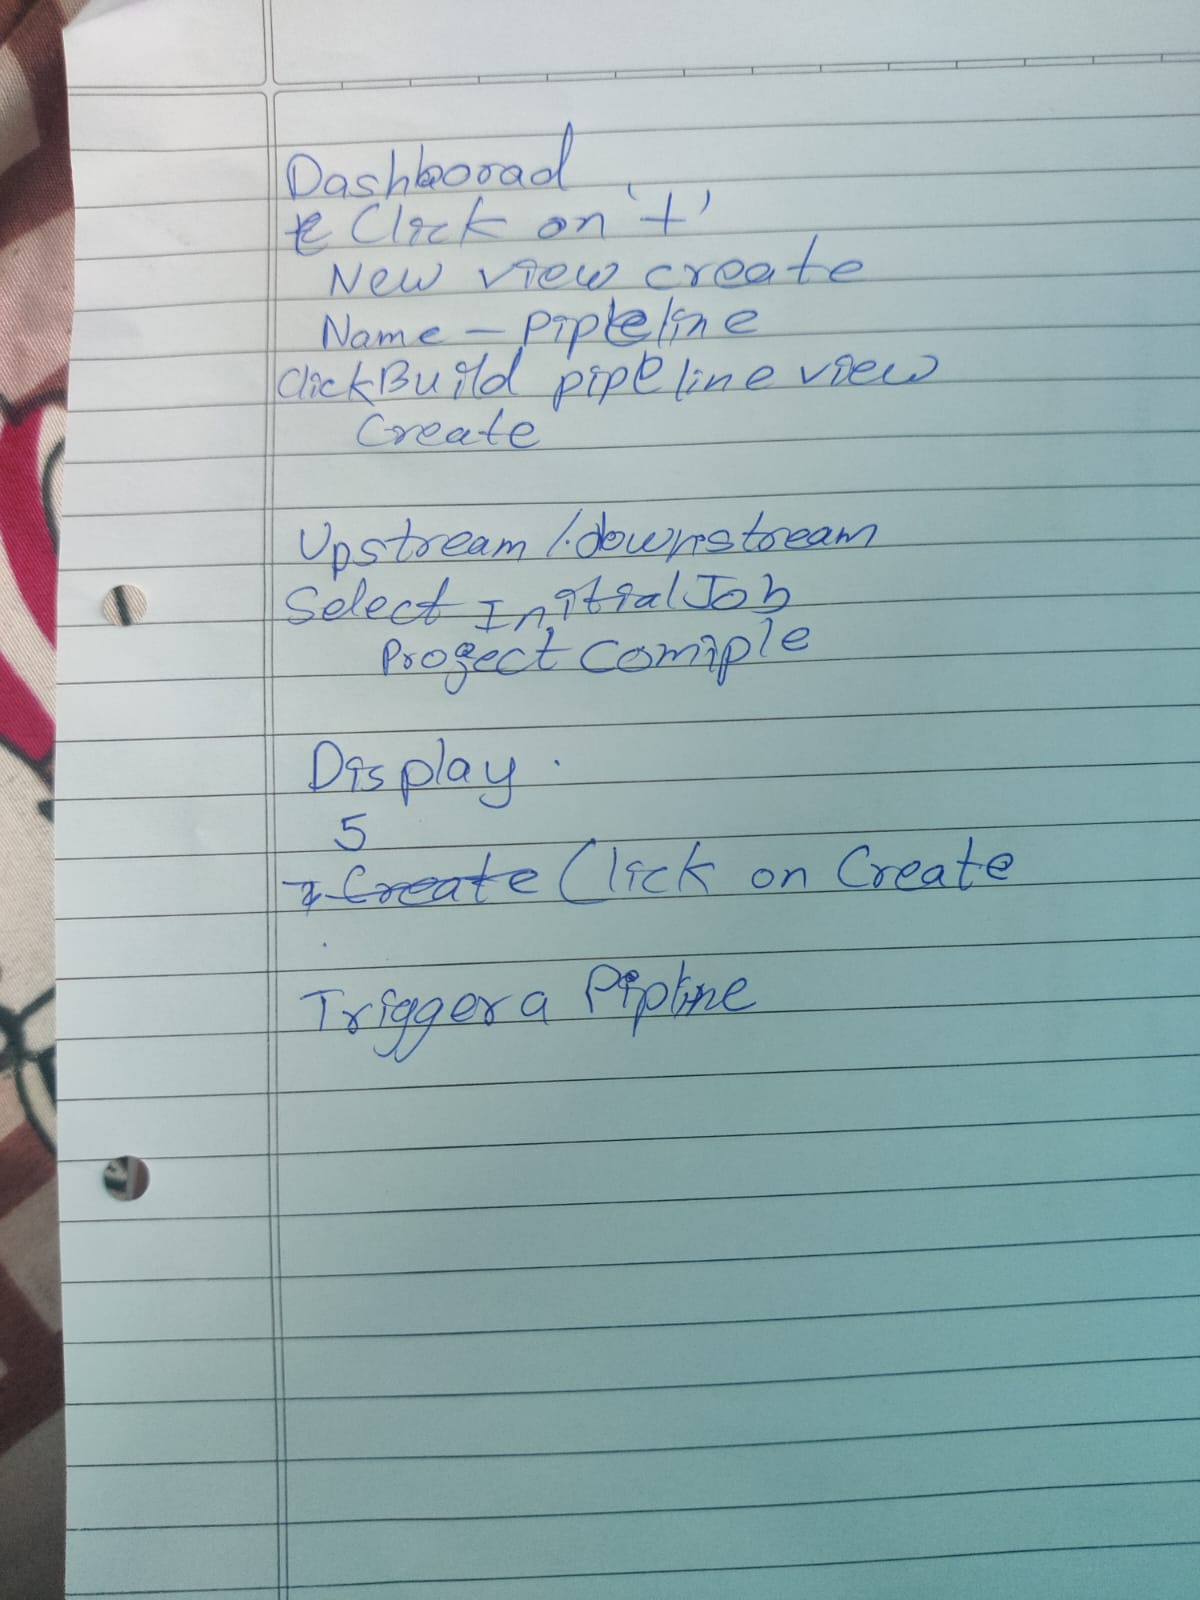 Dashborad
Click on '+'
New view create
Name - Pipeline
Click Build pipeline view
Create
Upstream / downstream
Select Initial Job
Project Comiple
Display
5
Create Click on Create
Trigger a Pipline